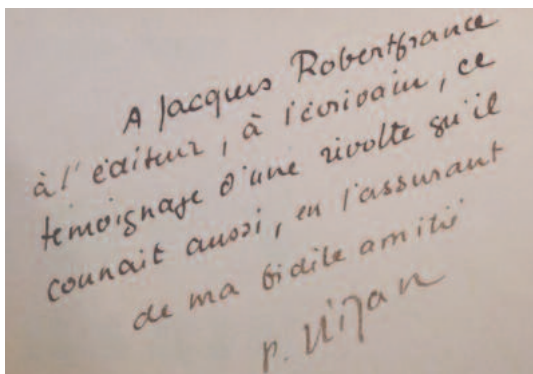 A Jacques Robertfrance
à l'éditeur, à l'écrivain, ce
témoignage d'une révolte qu'il
connait aussi, en l'assurant
de ma fidèle amitié
P. Nizan